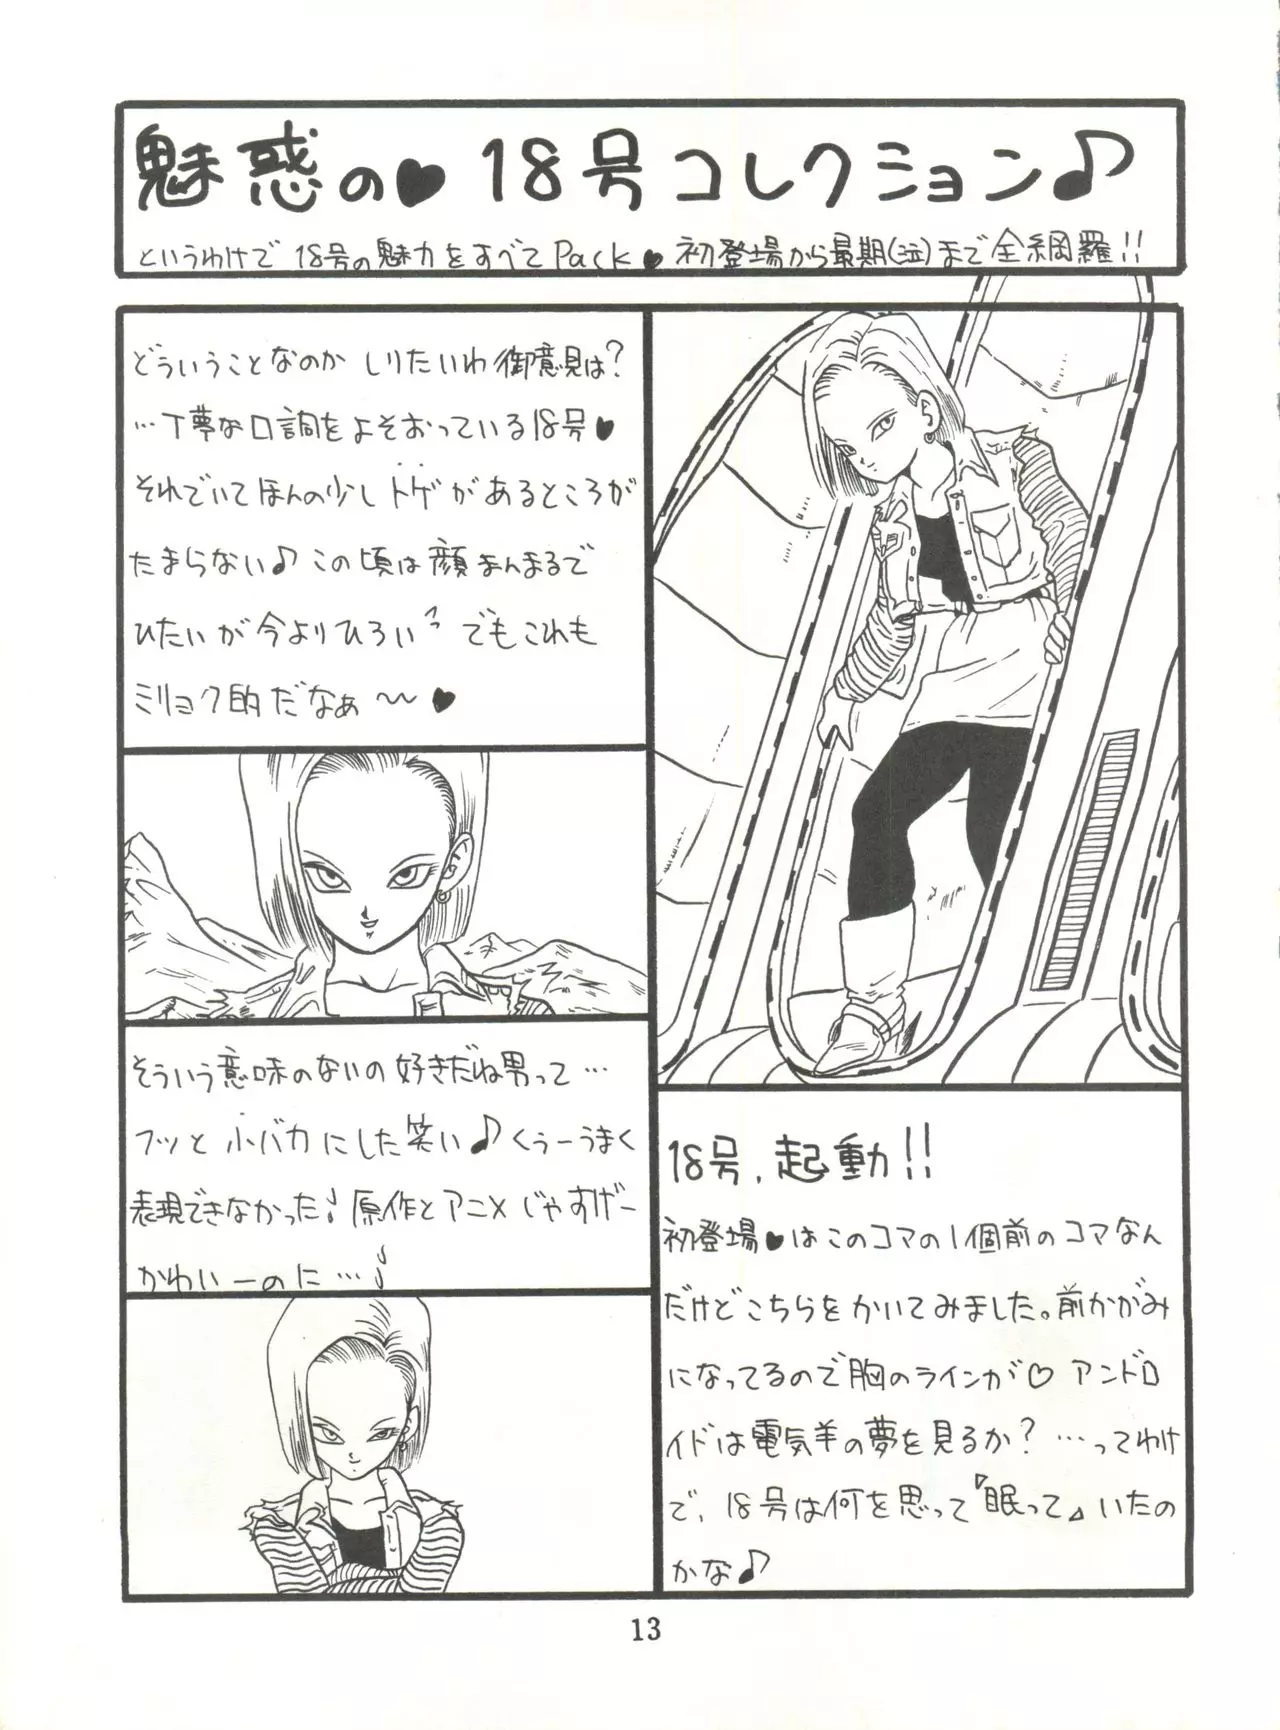 魅惑の♥18号コレクション♪
というわけで 18号の魅力をすべてPack♥初登場から最期(泣)まで全網羅!!
どういうことなのか しりたいわ御意見は?
…丁寧な口調をよそおっている18号♥
それでいてほんの少しトゲがあるところが
たまらない♪この頃は顔まんまるで
ひたいが今よりひろい でもこれも
ミリョク的だなぁ〜〜♥
そういう意味のないの好きだね男って…
フッと小バカにした笑い♪くぅーうまく
表現できなかった! 原作とアニメじゃすげー
かわいーのに…
18号, 起動!!
初登場♥はこのコマの1個前のコマなん
だけどこちらをかいてみました。前かがみ
になってるので胸のラインが♡ アンドロ
イドは電気羊の夢を見るか? …ってわけ
で, 18号は何を思って『眠って』いたの
かな♪
13